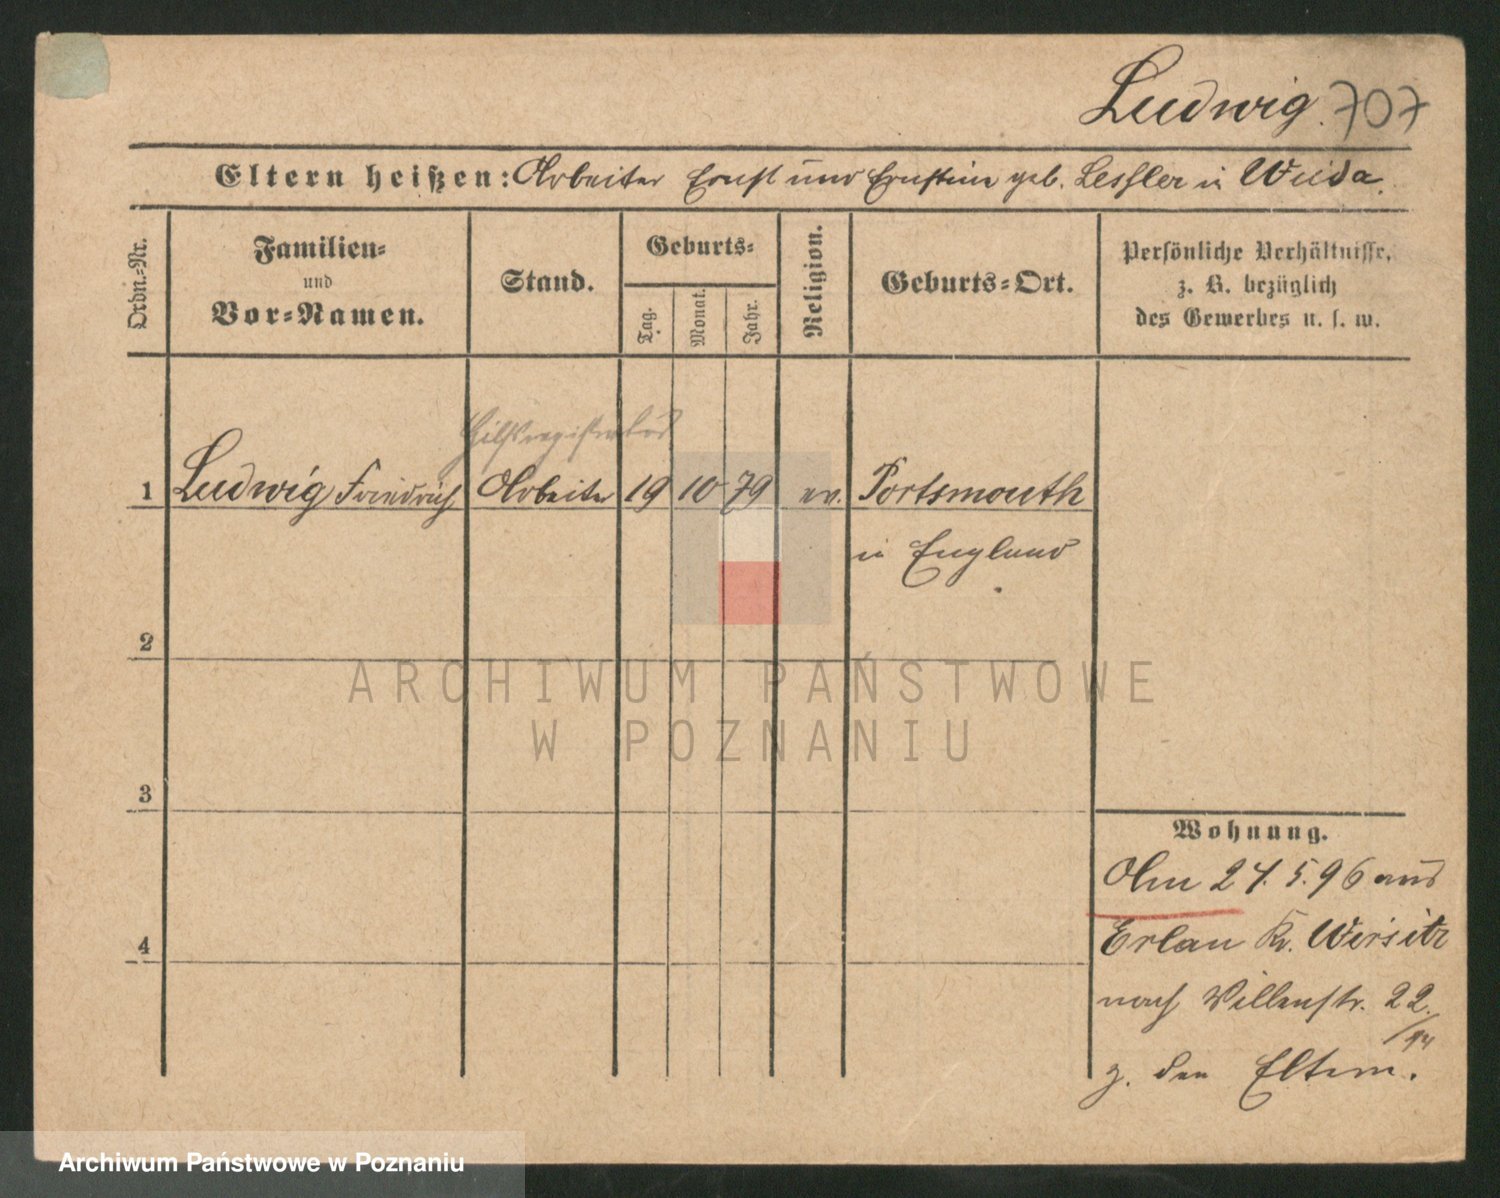 Ludwig. 707
Eltern heißen: Arbeiter Ernst und Ernstine geb. Lessler in Wilda.
Ordn.-Nr.
Familien-
und
Vor-Namen.
Stand.
Geburts-
Tag.
Monat.
Jahr.
Religion.
Geburts-Ort.
Persönliche Verhältnisse,
z. B. bezüglich
des Gewerbes u. s. w.
Hilfsregistrator
1 Ludwig Friedrich Arbeiter 19 10 79 ev. Portsmouth
in England
2
3
4
ARCHIWUM PAŃSTWOWE
W POZNANIU
Wohnung.
Am 27.5.96 aus
Erlau Kr. Wirsitz
nach Villenstr. 22.
z. den Eltern.
Archiwum Państwowe w Poznaniu